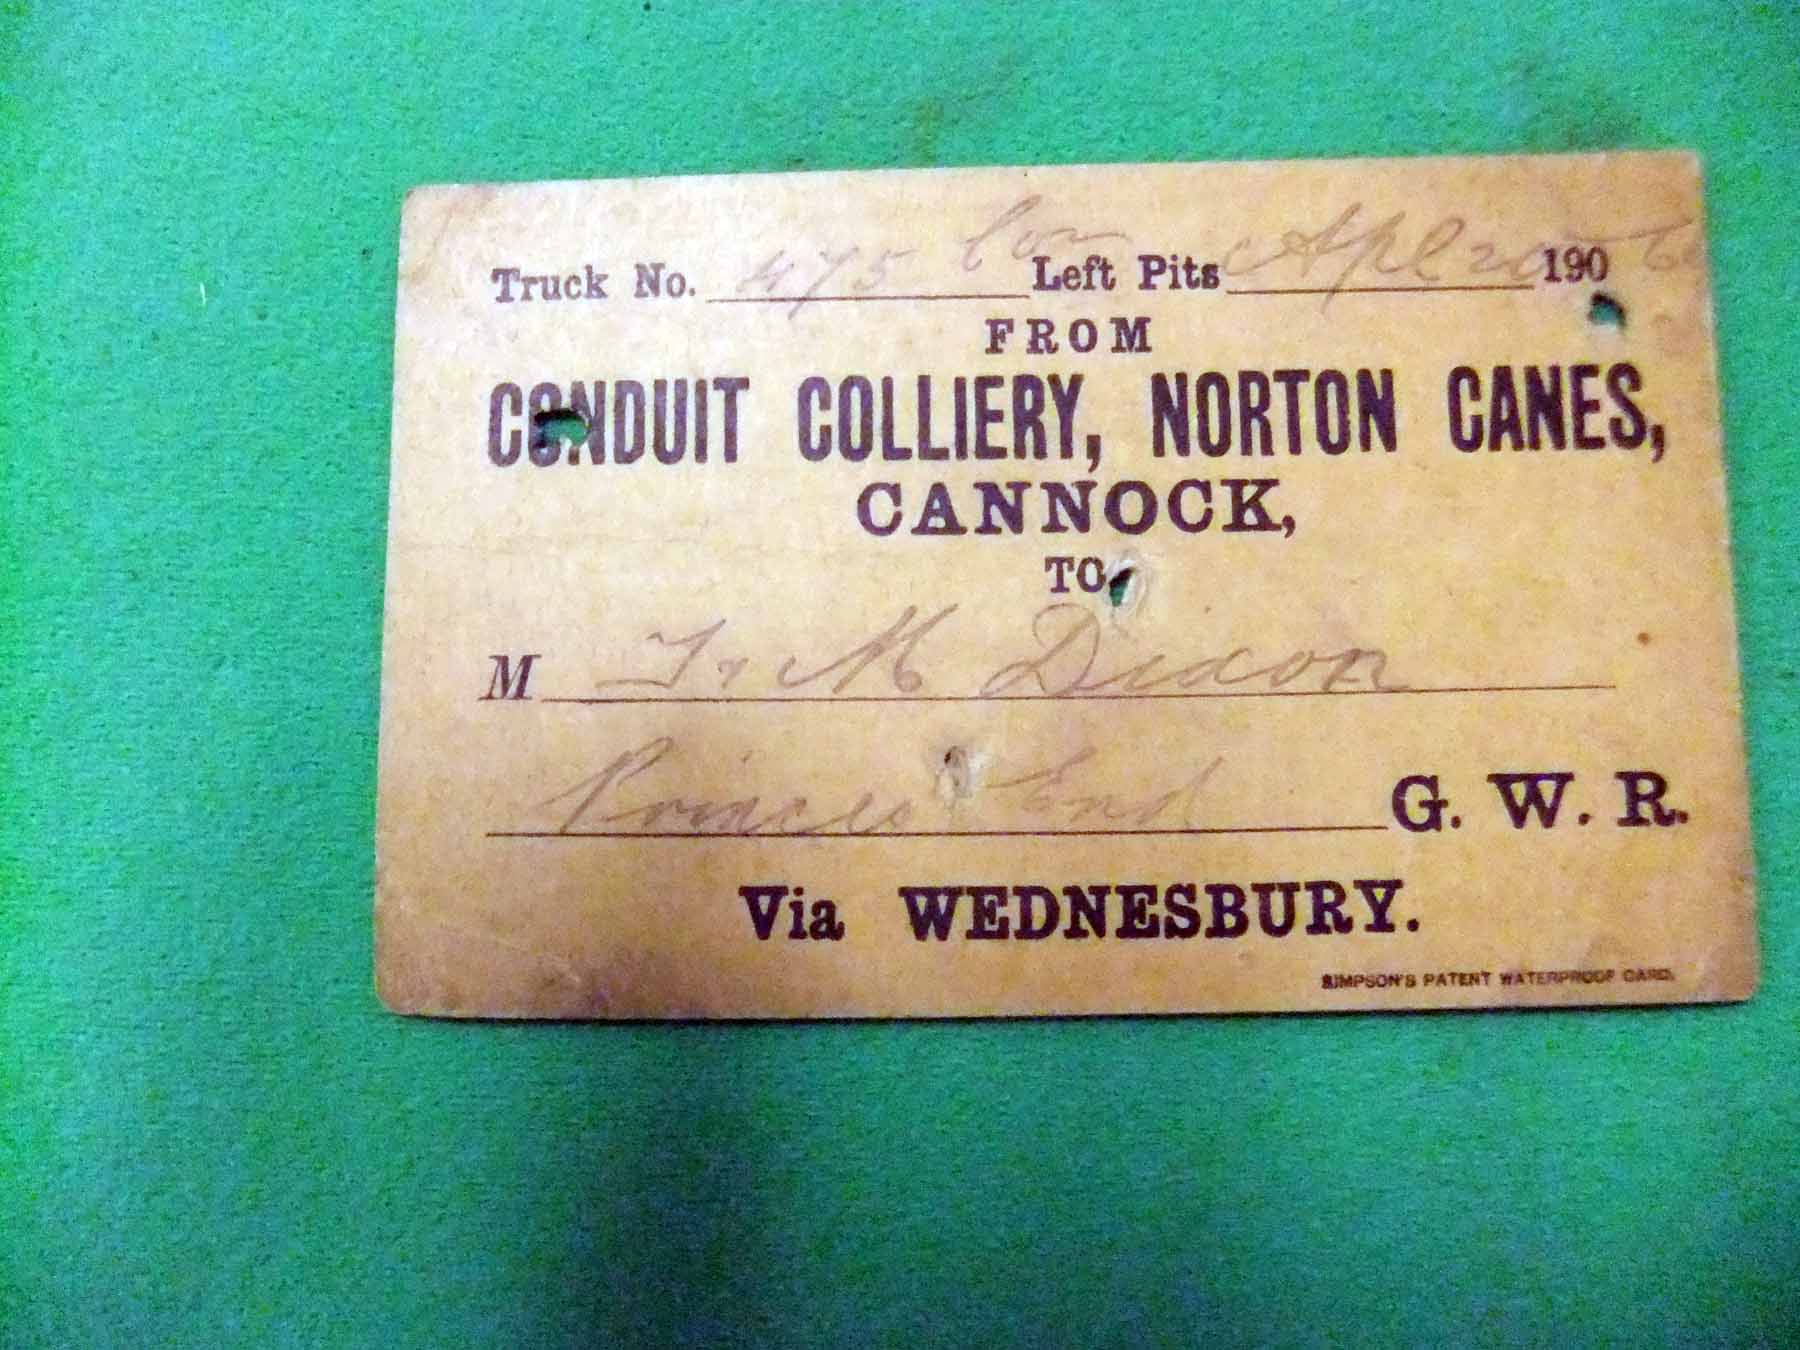 Truck No. 475 Con Left Pits Apl 20 1906
FROM
CONDUIT COLLIERY, NORTON CANES,
CANNOCK,
TO
M T. M Dixon
Princes End G. W. R.
Via WEDNESBURY.
SIMPSON'S PATENT WATERPROOF CARD.